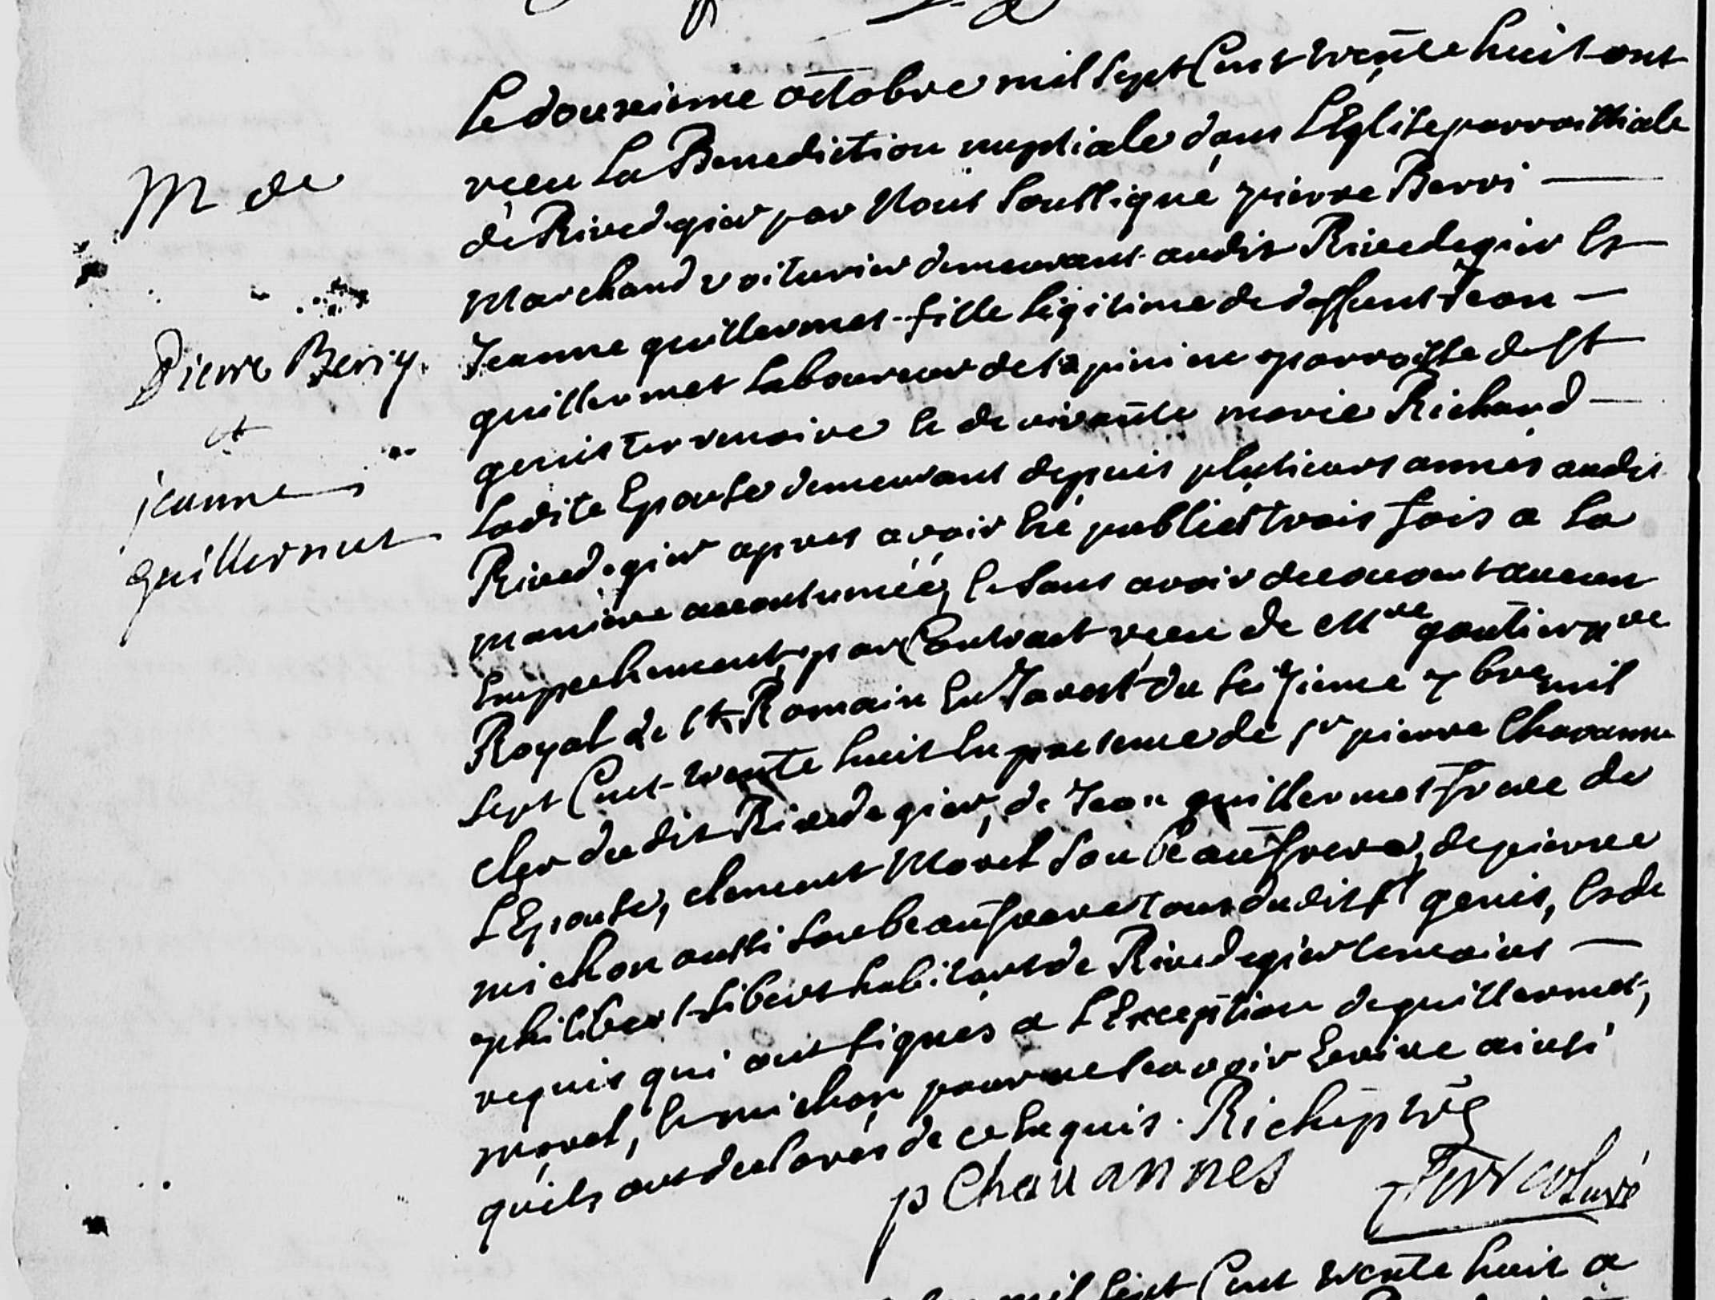 M de
Pierre Berry
et
jeanne
guillermet
Le douzeieme octobre mil sept Cent trente huit ont
reçu La Benediction nuptiale dans L'Eglise parroissiale
de Rivedegier par Nous soussigné pierre Berri
Marchand voiturier demeurant audit Rivedegier Et
Jeanne guillermet fille legitime de deffunt Jean
guillermet Laboureur de parroisse de St
genis terrenoire Et de vivante marie Richard
Ladite Epouse demeurant depuis plusieurs années audit
Rivedegier apres avoir Eté publiés trois fois a la
maniere accoutumée, Et sans avoir decouvert aucun
Empechement, par Contract reçu de Mtre gautier nre
Royal de St Romain En Jarest du seizieme 7bre mil
sept Cent trente huit En presence de sr pierre Chavanne
cler dudit Rivedegier, de Jean guillermet frere de
L'Epouse, clement Morel son beaufrere, de pierre
michon aussi son beaufrere tous dudit st genis, Et de
philibert fibert habitant de Rivedegier temoins
requis qui ont signés a L'Exception de guillermet,
morel, Et michon pour ne scavoir Ecrire ainsi
qu'ils ont declarés de ce Enquis. Rich ptre
p Chauannes
curé
mil sept Cent trente huit a